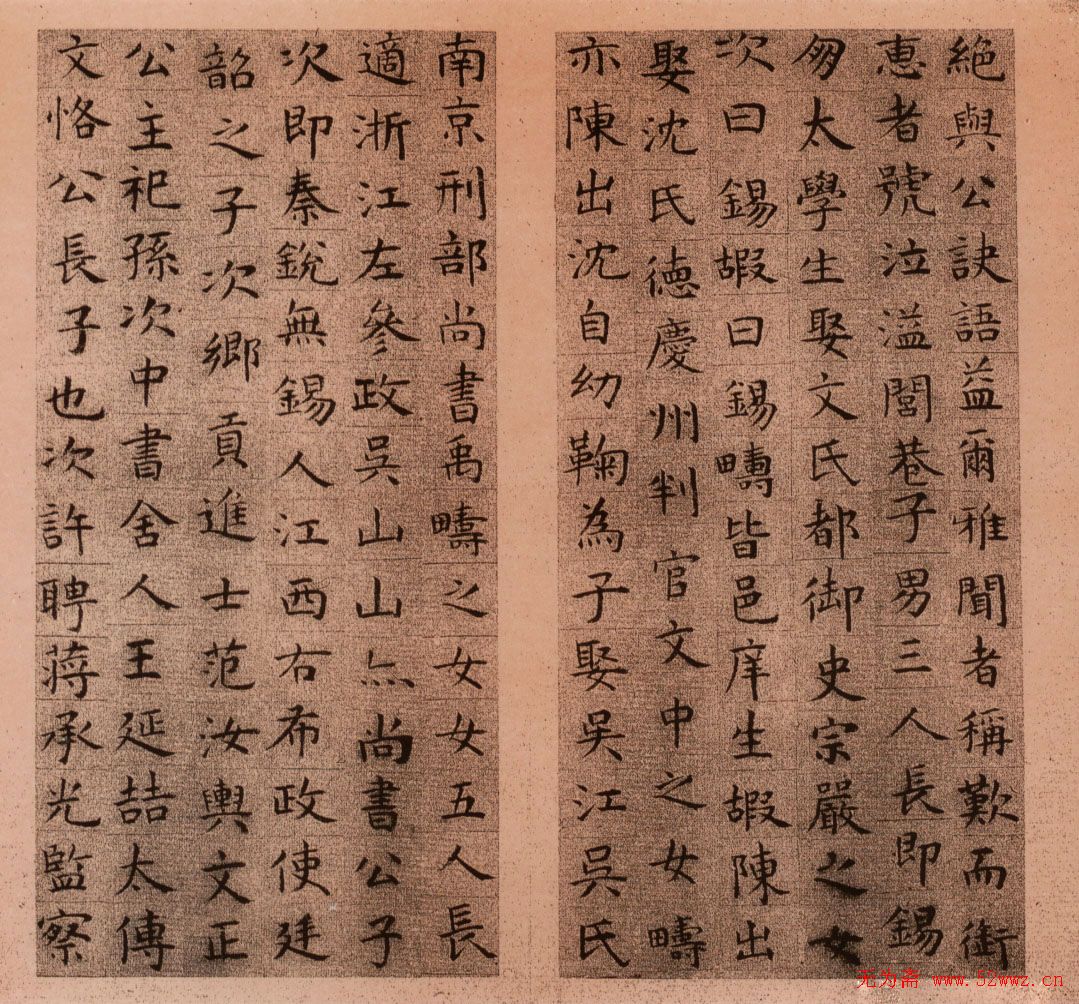 絕與公訣語益爾雅聞者稱歎而銜
惠者號泣溢閭巷子男三人長即錫
太學生娶文氏都御史宗嚴之女
次曰錫嘏曰錫疇皆邑庠生嘏陳出
娶沈氏德慶州判官文中之女疇
亦陳出沈自幼鞠為子娶吳江吳氏
南京刑部尚書禹疇之女女五人長
適浙江左參政吳山山亦尚書公子
次即秦銳無錫人江西右布政使廷
韶之子次鄉貢進士范汝輿文正
公主祀孫次中書舍人王延喆太傅
文恪公長子也次許聘蔣承光監察
无为斋 www.52wwz.cn